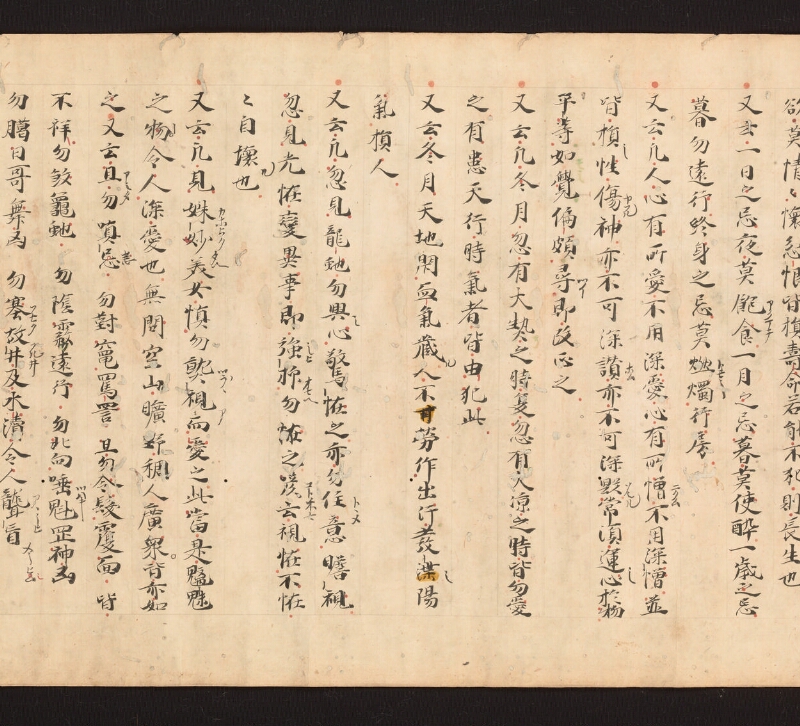 欲莫情〻懷忿恨皆損壽命若能不犯則長生也
又云一日之忌夜莫飽食一月之忌暮莫使酔一歳之忌
暮勿遠行終身之忌莫燃燭行房
又云凡人心有所愛不用深愛心有所憎不用深憎並
皆損性傷神亦不可深讃亦不可深毀常須運心於物
平等如覺偏頗尋即改正之
又云凡冬月忽有大熱之時夏忽有大凉之時皆勿愛
之有患天行時氣者皆由犯此
又云冬月天地閇血氣藏人不可勞作出行發洩陽
氣損人
又云凡忽見龍虵勿興心驚怪之亦勿住意瞻視
忽見光怪變異事即強抑勿怪之諺云視怪不怪
〻自壞也
又云凡見姝妙美女慎勿熟視而愛之此當是魑魅
之物令人深愛也無問空山曠野稠人廣衆皆亦如
之又云旦勿嗔恚勿對竈罵詈旦勿令髮覆面皆
不祥勿煞龜虵勿陰霧遠行勿北向唾魁罡神凶
勿腊日哥舞凶勿塞故井及水瀆令人聾盲